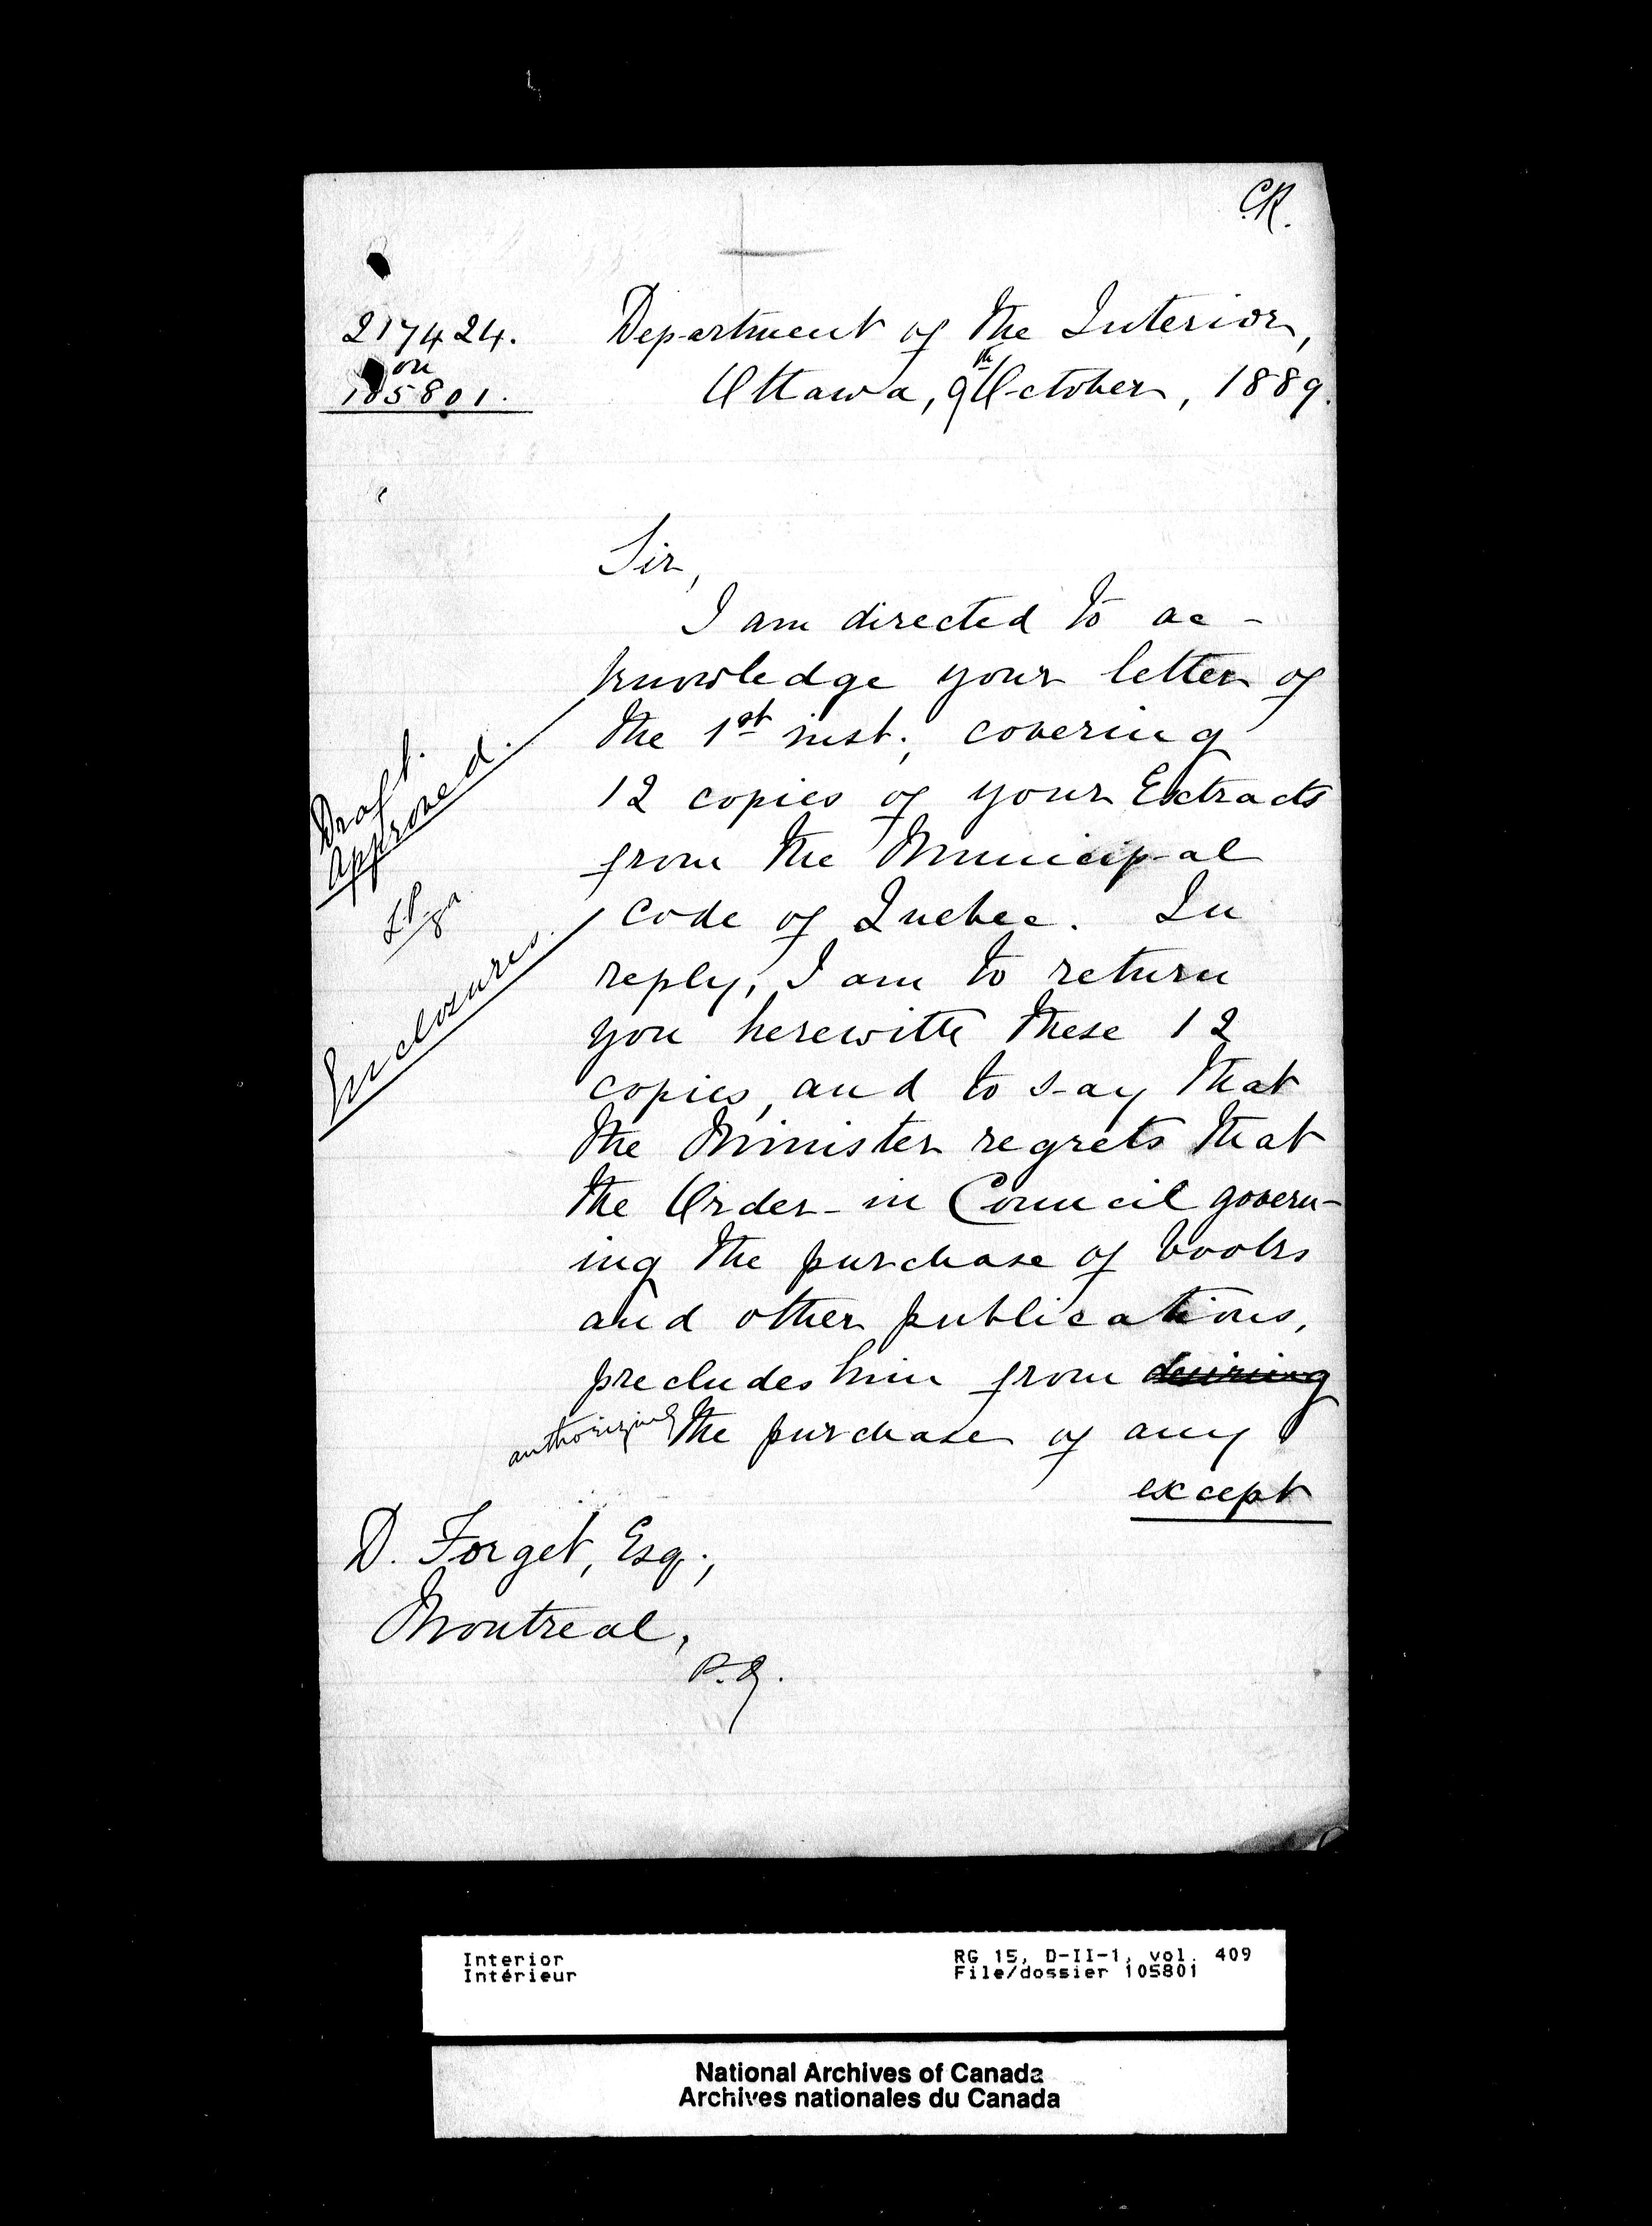 C.R.
217424.
on
105801.
Department of the Interior,
Ottawa, 9th October, 1889.
Sir,
I am directed to ac-
knowledge your letter of
the 1st inst., covering
12 copies of your Extracts
from the Municipal
Code of Quebec. In
reply, I am to return
you herewith these 12
copies, and to say that
the Minister regrets that
the Order-in Council govern-
ing the purchase of books
and other publications,
precludes him from desiring
authorizing the purchase of any
except
Draft.
Approved.
Enclosures.
D. Forget, Esq.,
Montreal,
P.Q.
Interior
Intérieur
RG 15, D-II-1, vol. 409
File/dossier 105801
National Archives of Canada
Archives nationales du Canada